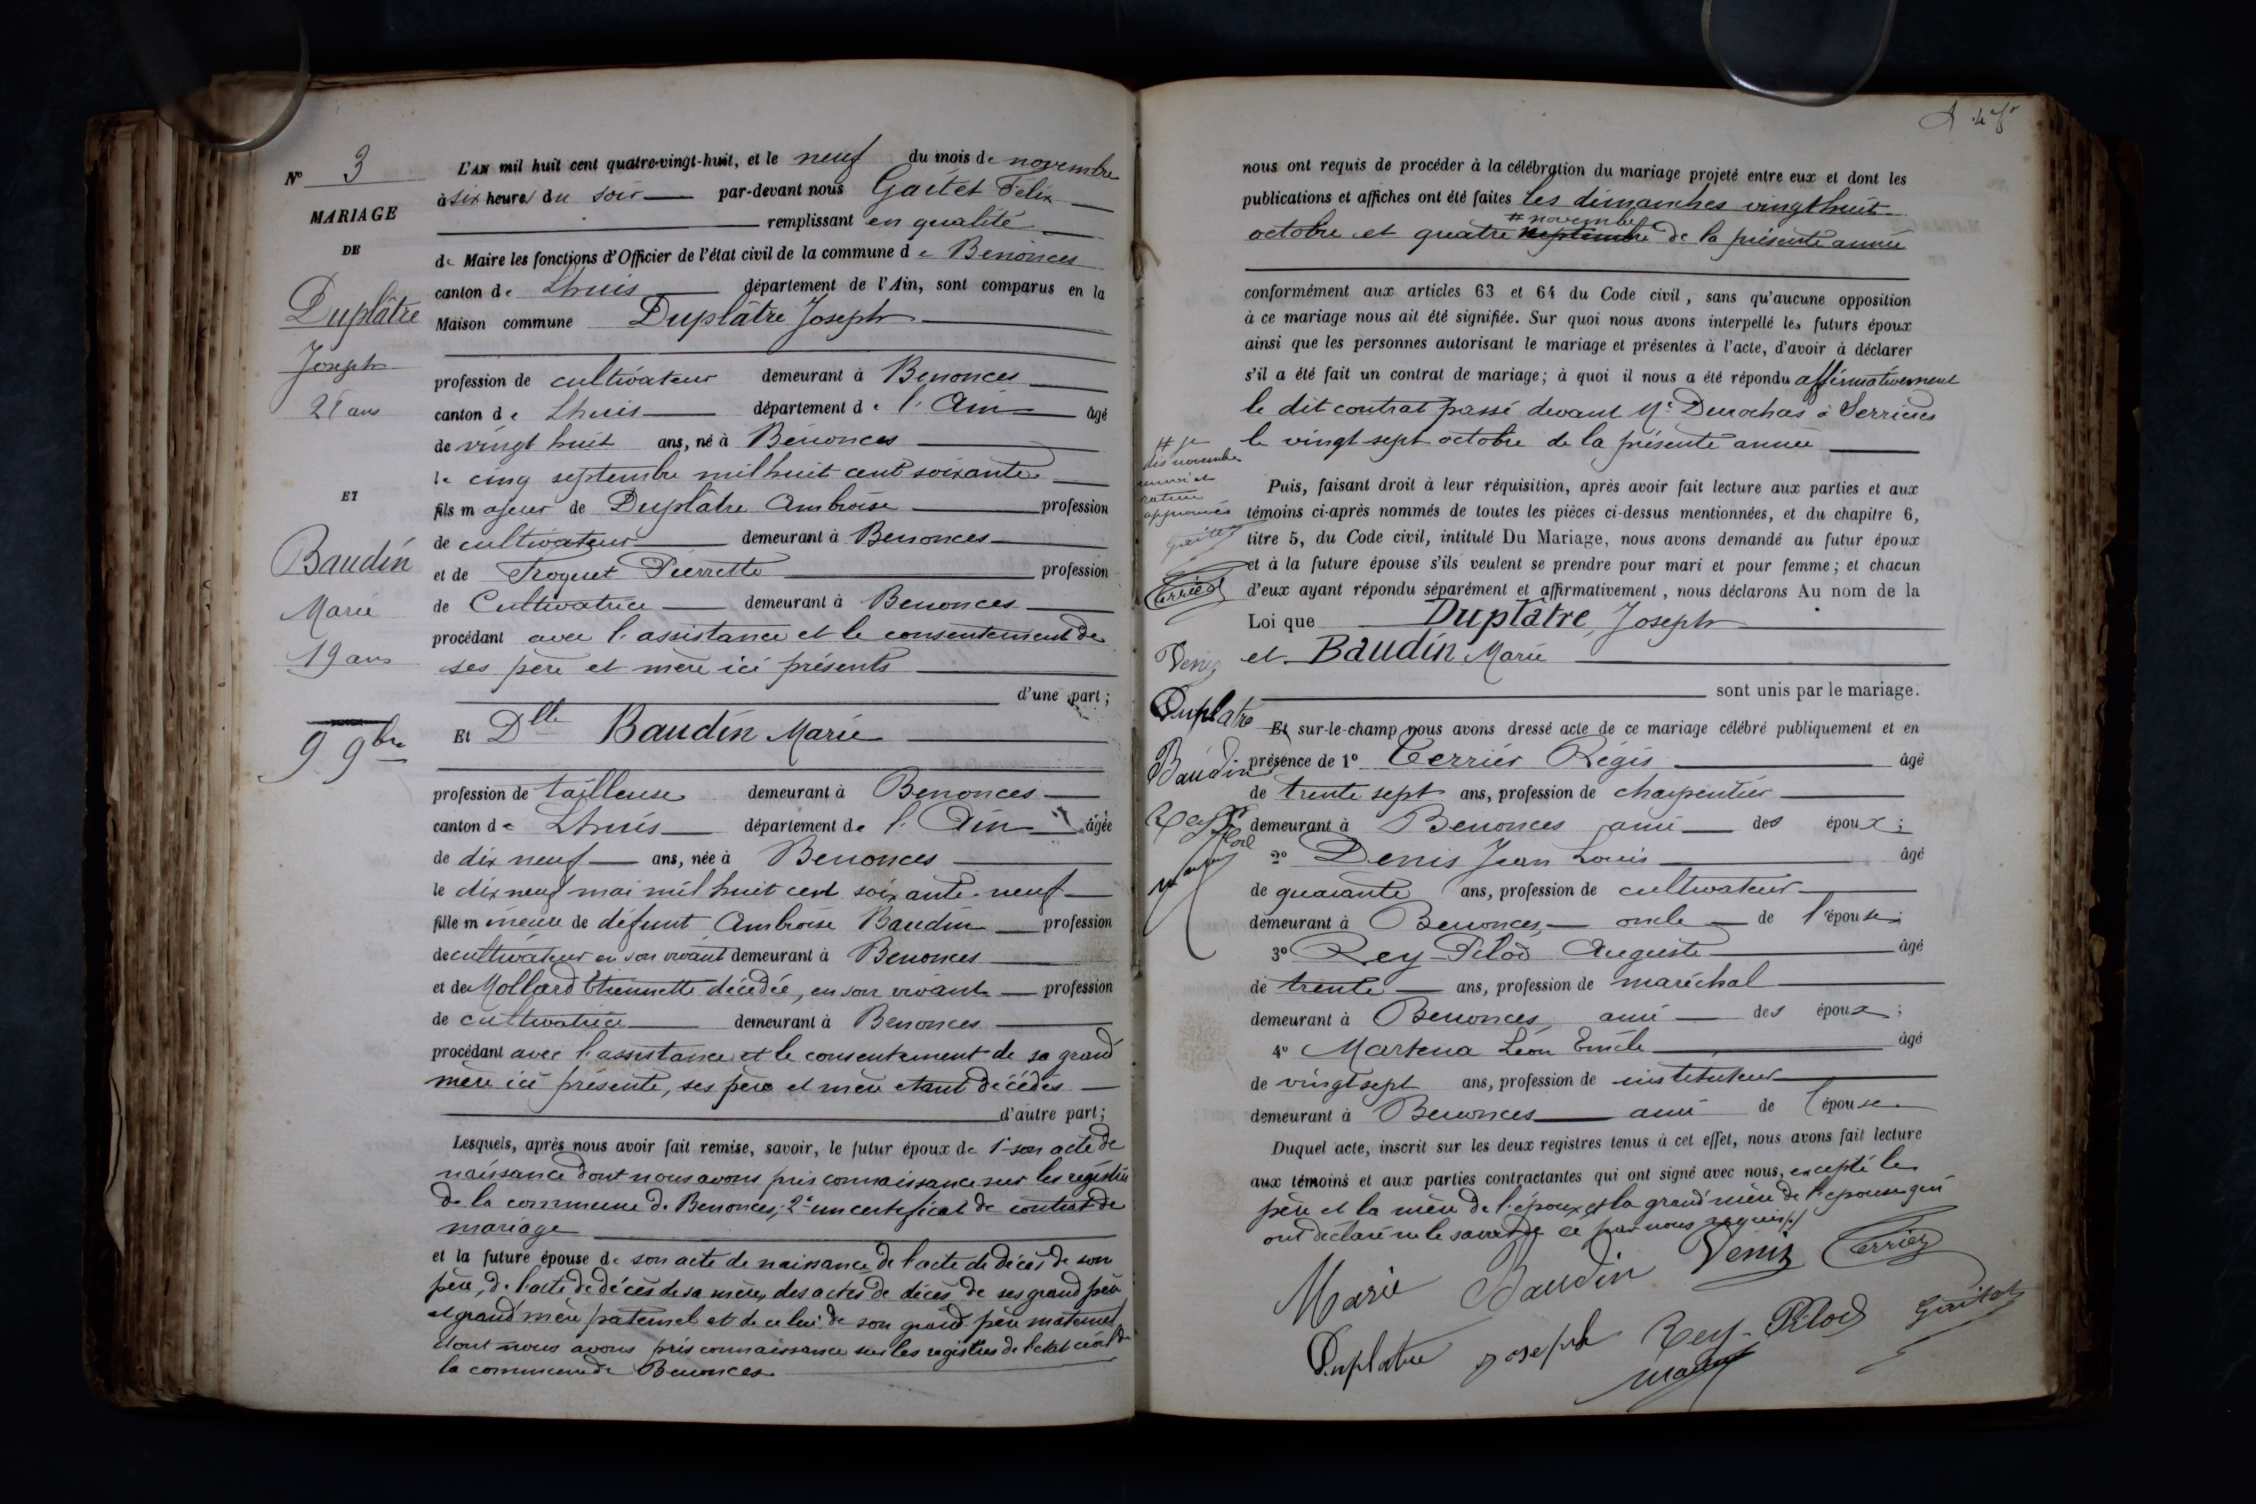 N° 3
MARIAGE
DE
Duplâtre
Joseph
28 ans
ET
Baudin
Marie
19 ans
9 9bre
L'AN mil huit cent quatre-vingt-huit, et le neuf du mois de novembre
à six heures du soir par-devant nous Gaitet Félix
remplissant en qualité
de Maire les fonctions d'Officier de l'état civil de la commune de Benonces
canton de Lhuis département de l'Ain, sont comparus en la
Maison commune Duplâtre Joseph
profession de cultivateur demeurant à Benonces
canton de Lhuis département de l'Ain âgé
de vingt huit ans, né à Bénonces
le cinq septembre mil huit cent soixante
fils majeur de Duplâtre Ambroise profession
de cultivateur demeurant à Benonces
et de Troquet Pierrette profession
de Cultivatrice demeurant à Benonces
procédant avec l'assistance et le consentement de
ses père et mère ici présents
d'une part;
Et Dlle Baudin Marie
profession de tailleuse demeurant à Benonces
canton de Lhuis département de l'Ain âgée
de dix neuf ans, née à Benonces
le dix neuf mai mil huit cent soixante-neuf
fille mineure de défunt Ambroise Baudin profession
de cultivateur en son vivant demeurant à Benonces
et de Mollard Etiennette décédée, en son vivant profession
de cultivatrice demeurant à Benonces
procédant avec l'assistance et le consentement de sa grand
mère ici présente, ses père et mère étant décédés
d'autre part;
Lesquels, après nous avoir fait remise, savoir, le futur époux de 1° son acte de
naissance dont nous avons pris connaissance sur les registres
de la commune de Benonces; 2° un certificat de contrat de
mariage
et la future épouse de son acte de naissance, de l'acte de décès de son
père, de l'acte de décès de sa mère, des actes de décès de ses grand père
et grand'mère paternels et de celui de son grand père maternel
dont nous avons pris connaissance sur les registres de l'état civil de
la commune de Benonces
nous ont requis de procéder à la célébration du mariage projeté entre eux et dont les
publications et affiches ont été faites les dimanches vingt huit
# novembre
octobre et quatre septembre de la présente année
conformément aux articles 63 et 64 du Code civil, sans qu'aucune opposition
à ce mariage nous ait été signifiée. Sur quoi nous avons interpellé les futurs époux
ainsi que les personnes autorisant le mariage et présentes à l'acte, d'avoir à déclarer
s'il a été fait un contrat de mariage; à quoi il nous a été répondu affirmativement
le dit contrat passé devant Me Durochas à Serrières
le vingt sept octobre de la présente année
# je
dis novembre
approuvés
Gaitet
Terrier
Denis
Duplatre
Baudin
Rey Pilod
Puis, faisant droit à leur réquisition, après avoir fait lecture aux parties et aux
témoins ci-après nommés de toutes les pièces ci-dessus mentionnées, et du chapitre 6,
titre 5, du Code civil, intitulé Du Mariage, nous avons demandé au futur époux
et à la future épouse s'ils veulent se prendre pour mari et pour femme; et chacun
d'eux ayant répondu séparément et affirmativement, nous déclarons Au nom de la
Loi que Duplâtre Joseph
et Baudin Marie
sont unis par le mariage.
Et sur-le-champ nous avons dressé acte de ce mariage célébré publiquement et en
présence de 1° Terrier Régis âgé
de trente sept ans, profession de charpentier
demeurant à Benonces ami des époux;
2° Denis Jean Louis âgé
de quarante ans, profession de cultivateur
demeurant à Benonces, oncle de l'épouse;
3° Rey-Pilod Auguste âgé
de trente ans, profession de maréchal
demeurant à Benonces, ami des époux;
4° Martena Léon Emile âgé
de vingt sept ans, profession de instituteur
demeurant à Benonces ami de l'épouse
Duquel acte, inscrit sur les deux registres tenus à cet effet, nous avons fait lecture
aux témoins et aux parties contractantes qui ont signé avec nous, excepté le
père et la mère de l'époux et la grand'mère de l'épouse qui
ont déclaré ne le savoir de ce par nous requis
Marie Baudin Denis Terrier
Duplatre Joseph Rey-Pilod Gaitet